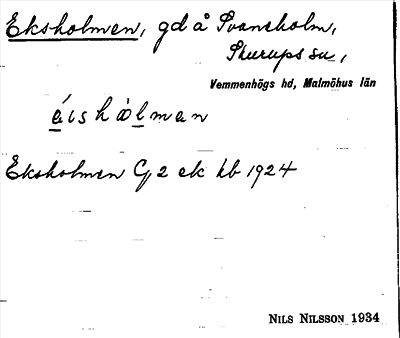 Eksholmen, gd å Svaneholm,
Skurups sn,
Vemmenhögs hd, Malmöhus län
éishålman
Eksholmen G 2 ek kb 1924
NILS NILSSON 1934